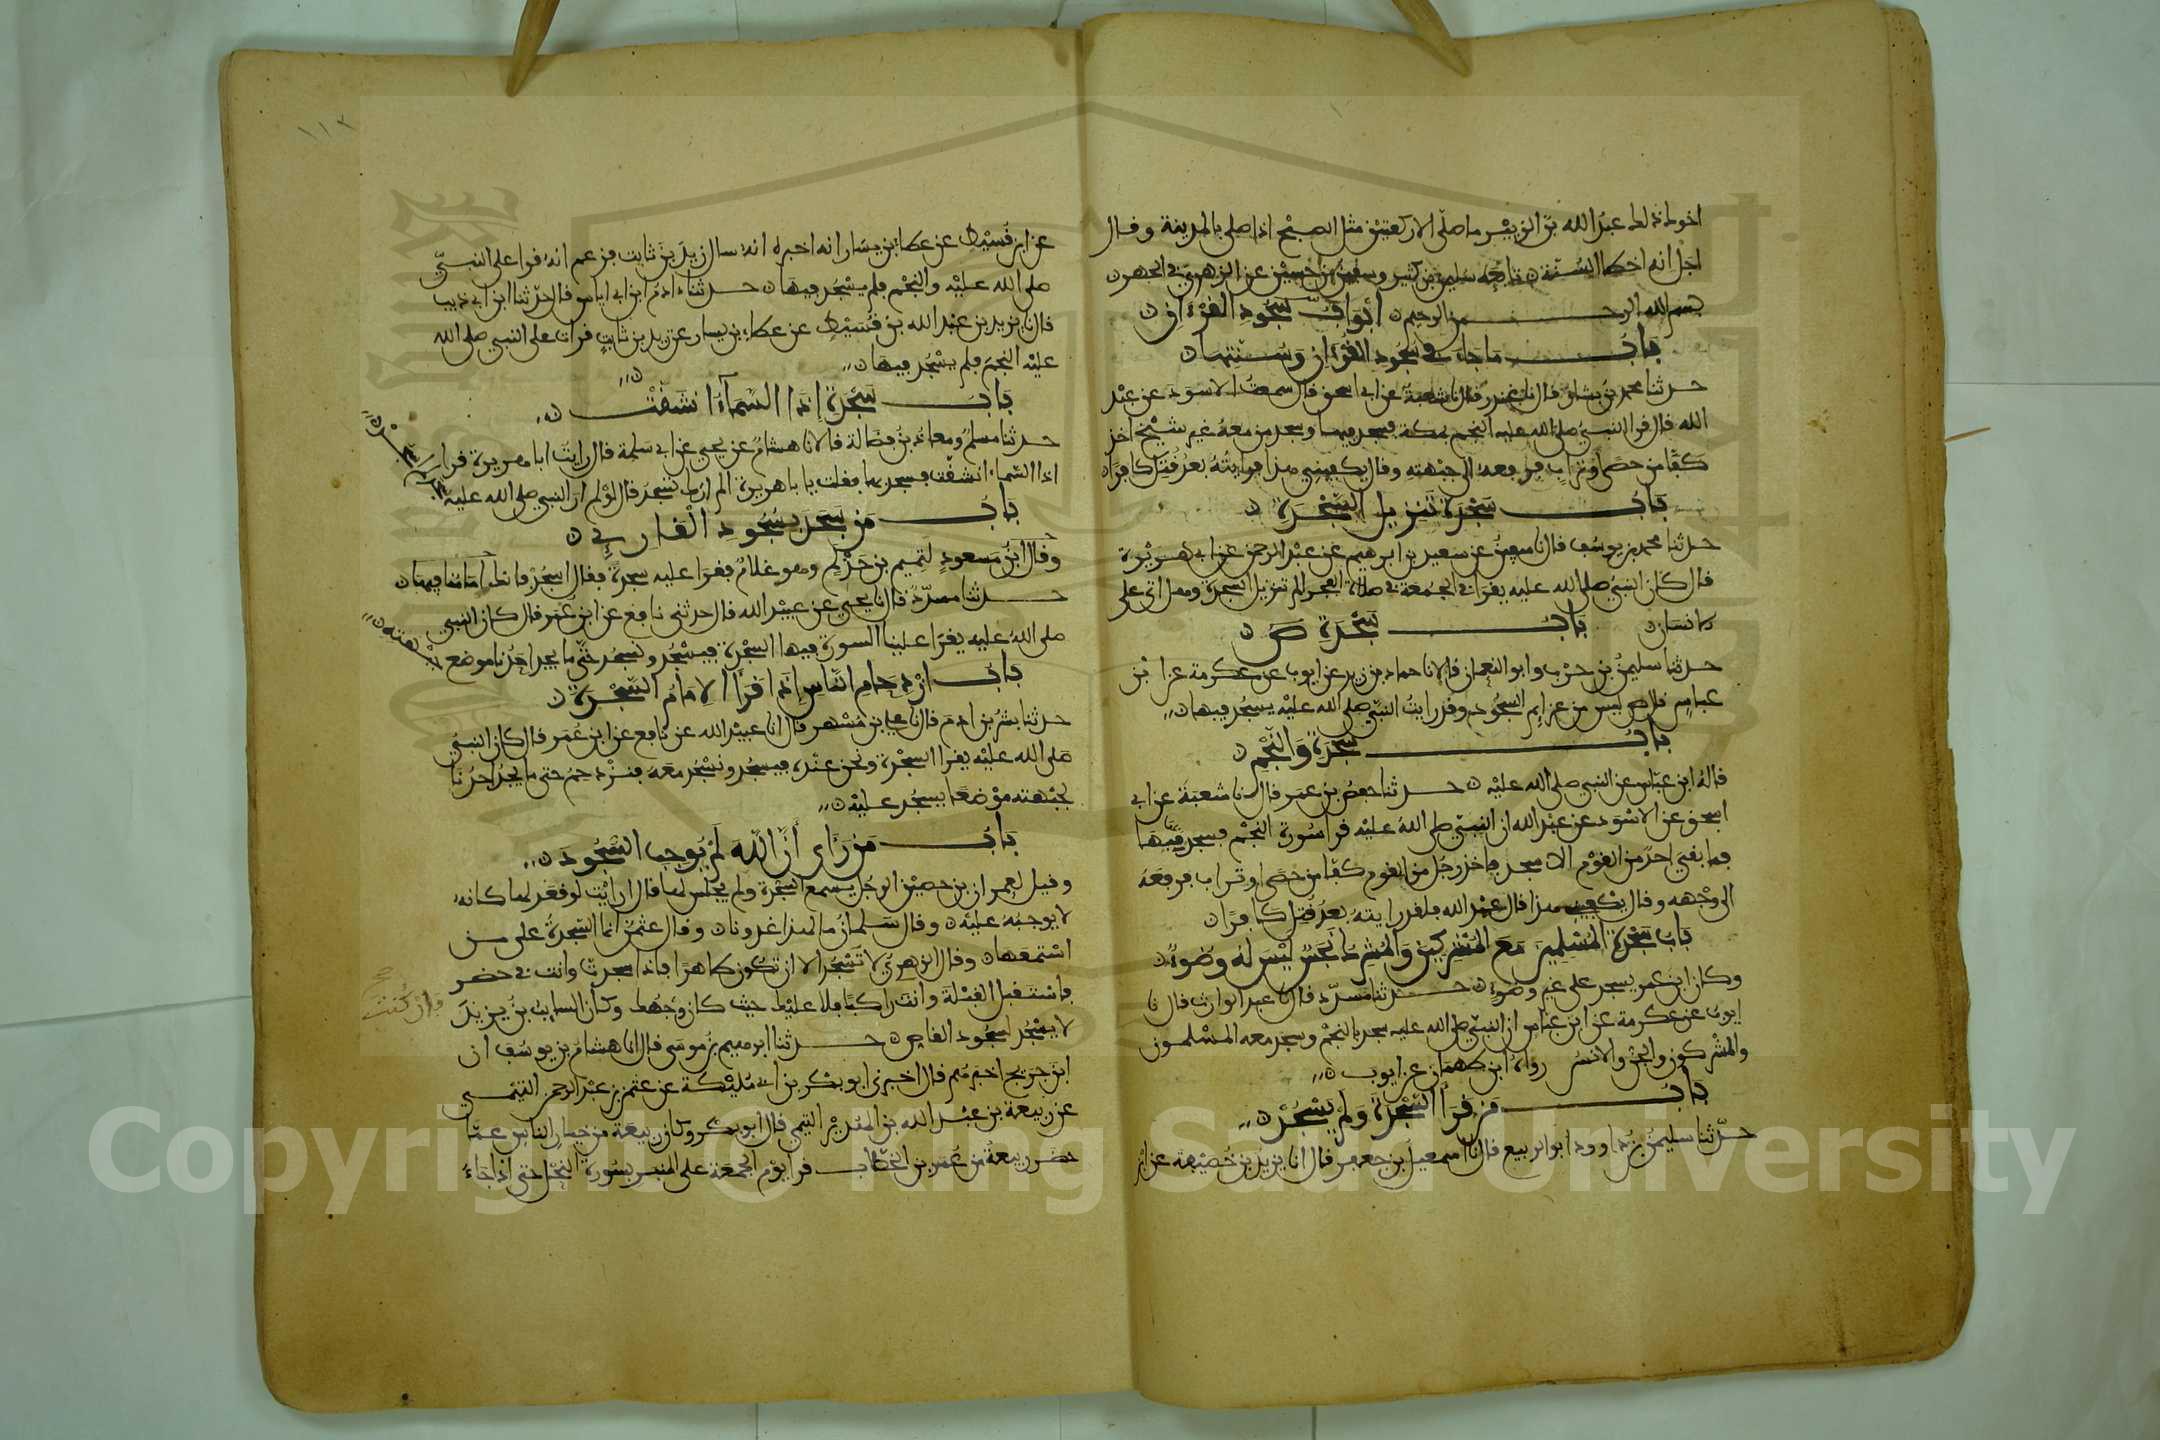 اخوك ذلك عبد الله بن الزبير ما صلى الا ركعتين مثل الصبح اذا صلى بالمدينة وقال
اجل انه اخطا السنة تابعه سليمن بن كثير وسفين بن حسين عن الزهري في الجهر
بسم الله الرحمن الرحيم ابواب سجود القرءان
باب ما جاء في سجود القرءان وسنتها
حدثنا محمد بن بشار قال نا غندر قال نا شعبة عن ابي اسحق قال سمعت الاسود عن عبد
الله قال قرا النبي صلى الله عليه النجم بمكة فسجد فيها وسجد من معه غير شيخ اخذ
كفا من حصا او تراب فرفعه الى جبهته وقال يكفيني هذا فرايته بعد قتل كافرا
باب سجدة تنزيل السجدة
حدثنا محمد بن يوسف قال نا سفين عن سعد بن ابرهيم عن عبد الرحمن عن ابي هريرة
قال كان النبي صلى الله عليه يقرا في الجمعة في صلاة الفجر الم تنزيل السجدة وهل اتى على
الانسان باب سجدة ص
حدثنا سليمن بن حرب وابو النعمان قالا نا حماد بن زيد عن ايوب عن عكرمة عن ابن
عباس قال ص ليس من عزايم السجود وقد رايت النبي صلى الله عليه يسجد فيها
باب سجدة والنجم
قاله ابن عباس عن النبي صلى الله عليه حدثنا حفص بن عمر قال نا شعبة عن ابي
اسحق عن الاسود عن عبد الله ان النبي صلى الله عليه قرا سورة النجم فسجد فيها
فما بقي احد من القوم الا سجد فاخذ رجل من القوم كفا من حصا او تراب فرفعه
الى وجهه وقال يكفيني هذا قال عبد الله فلقد رايته بعد قتل كافرا
باب سجدة المسلمين مع المشركين والمشرك نجس ليس له وضوء
وكان ابن عمر يسجد على غير وضوء حدثنا مسدد قال نا عبد الوارث قال نا
ايوب عن عكرمة عن ابن عباس ان النبي صلى الله عليه سجد بالنجم وسجد معه المسلمون
والمشركون والجن والانس رواه ابن طهمان عن ايوب
باب من قرا السجدة ولم يسجد
حدثنا سليمن بن داوود ابو الربيع قال نا اسمعيل بن جعفر قال انا يزيد بن خصيفة عن ابن
١١٢
عن ابن قسيط عن عطاء بن يسار انه اخبره انه سال زيد بن ثابت فزعم انه قرا على النبي
صلى الله عليه والنجم فلم يسجد فيها حدثنا ادم ابن ابي اياس قال حدثنا ابن ابي ذيب
قال نا يزيد بن عبد الله بن قسيط عن عطاء بن يسار عن زيد بن ثابت قرات على النبي صلى الله
عليه النجم فلم يسجد فيها
باب سجدة اذا السماء انشقت
حدثنا مسلم ومعاذ بن فضالة قالا نا هشام عن يحيى عن ابي سلمة قال رايت ابا هريرة قرا
اذا السماء انشقت فسجد بها فقلت يا با هريرة الم ارك تسجد قال لو لم ار النبي صلى الله عليه
باب من سجد بسجود القارئ
وقال ابن مسعود لتميم بن حذلم وهو غلام فقرا عليه سجدة فقال اسجد فانك امامنا فيها
حدثنا مسدد قال نا يحيى عن عبيد الله قال حدثني نافع عن ابن عمر قال كان النبي
صلى الله عليه يقرا علينا السورة فيها السجدة فيسجد ونسجد حتى ما يجد احدنا موضع جبهته
باب ازدحام الناس اذا قرا الامام السجدة
حدثنا بشر بن ادم قال نا علي بن مسهر قال انا عبيد الله عن نافع عن ابن عمر قال كان النبي
صلى الله عليه يقرا السجدة ونحن عنده فيسجد ونسجد معه فنزدحم حتى ما يجد احدنا
لجبهته موضعا يسجد عليه
باب من راى ان الله لم يوجب السجود
وقيل لعمران بن حصين الرجل يسمع السجدة ولم يجلس لها قال ارايت لو قعد لها كانه
لا يوجبه عليه وقال سلمان ما لهذا غدونا وقال عثمن انما السجدة على من
استمعها وقال الزهري لا تسجد الا ان تكون طاهرا فاذا سجدت وانت في حضر
فاستقبل القبلة وانت راكبا فلا عليك حيث كان وجهك وكان السايب بن يزيد
فان كنت
لا يسجد لسجود القاص حدثنا ابرهيم بن موسى قال انا هشام بن يوسف ان
ابن جريج اخبرهم قال اخبرني ابو بكر بن ابي مليكة عن عثمن بن عبد الرحمن التيمي
عن ربيعة بن عبد الله بن الهدير التيمي قال ابو بكر وكان ربيعة من خيار الناس عما
حضر ربيعة من عمر بن الخطاب قرا يوم الجمعة على المنبر بسورة النحل حتى اذا جاء
Copyright © King Saud University